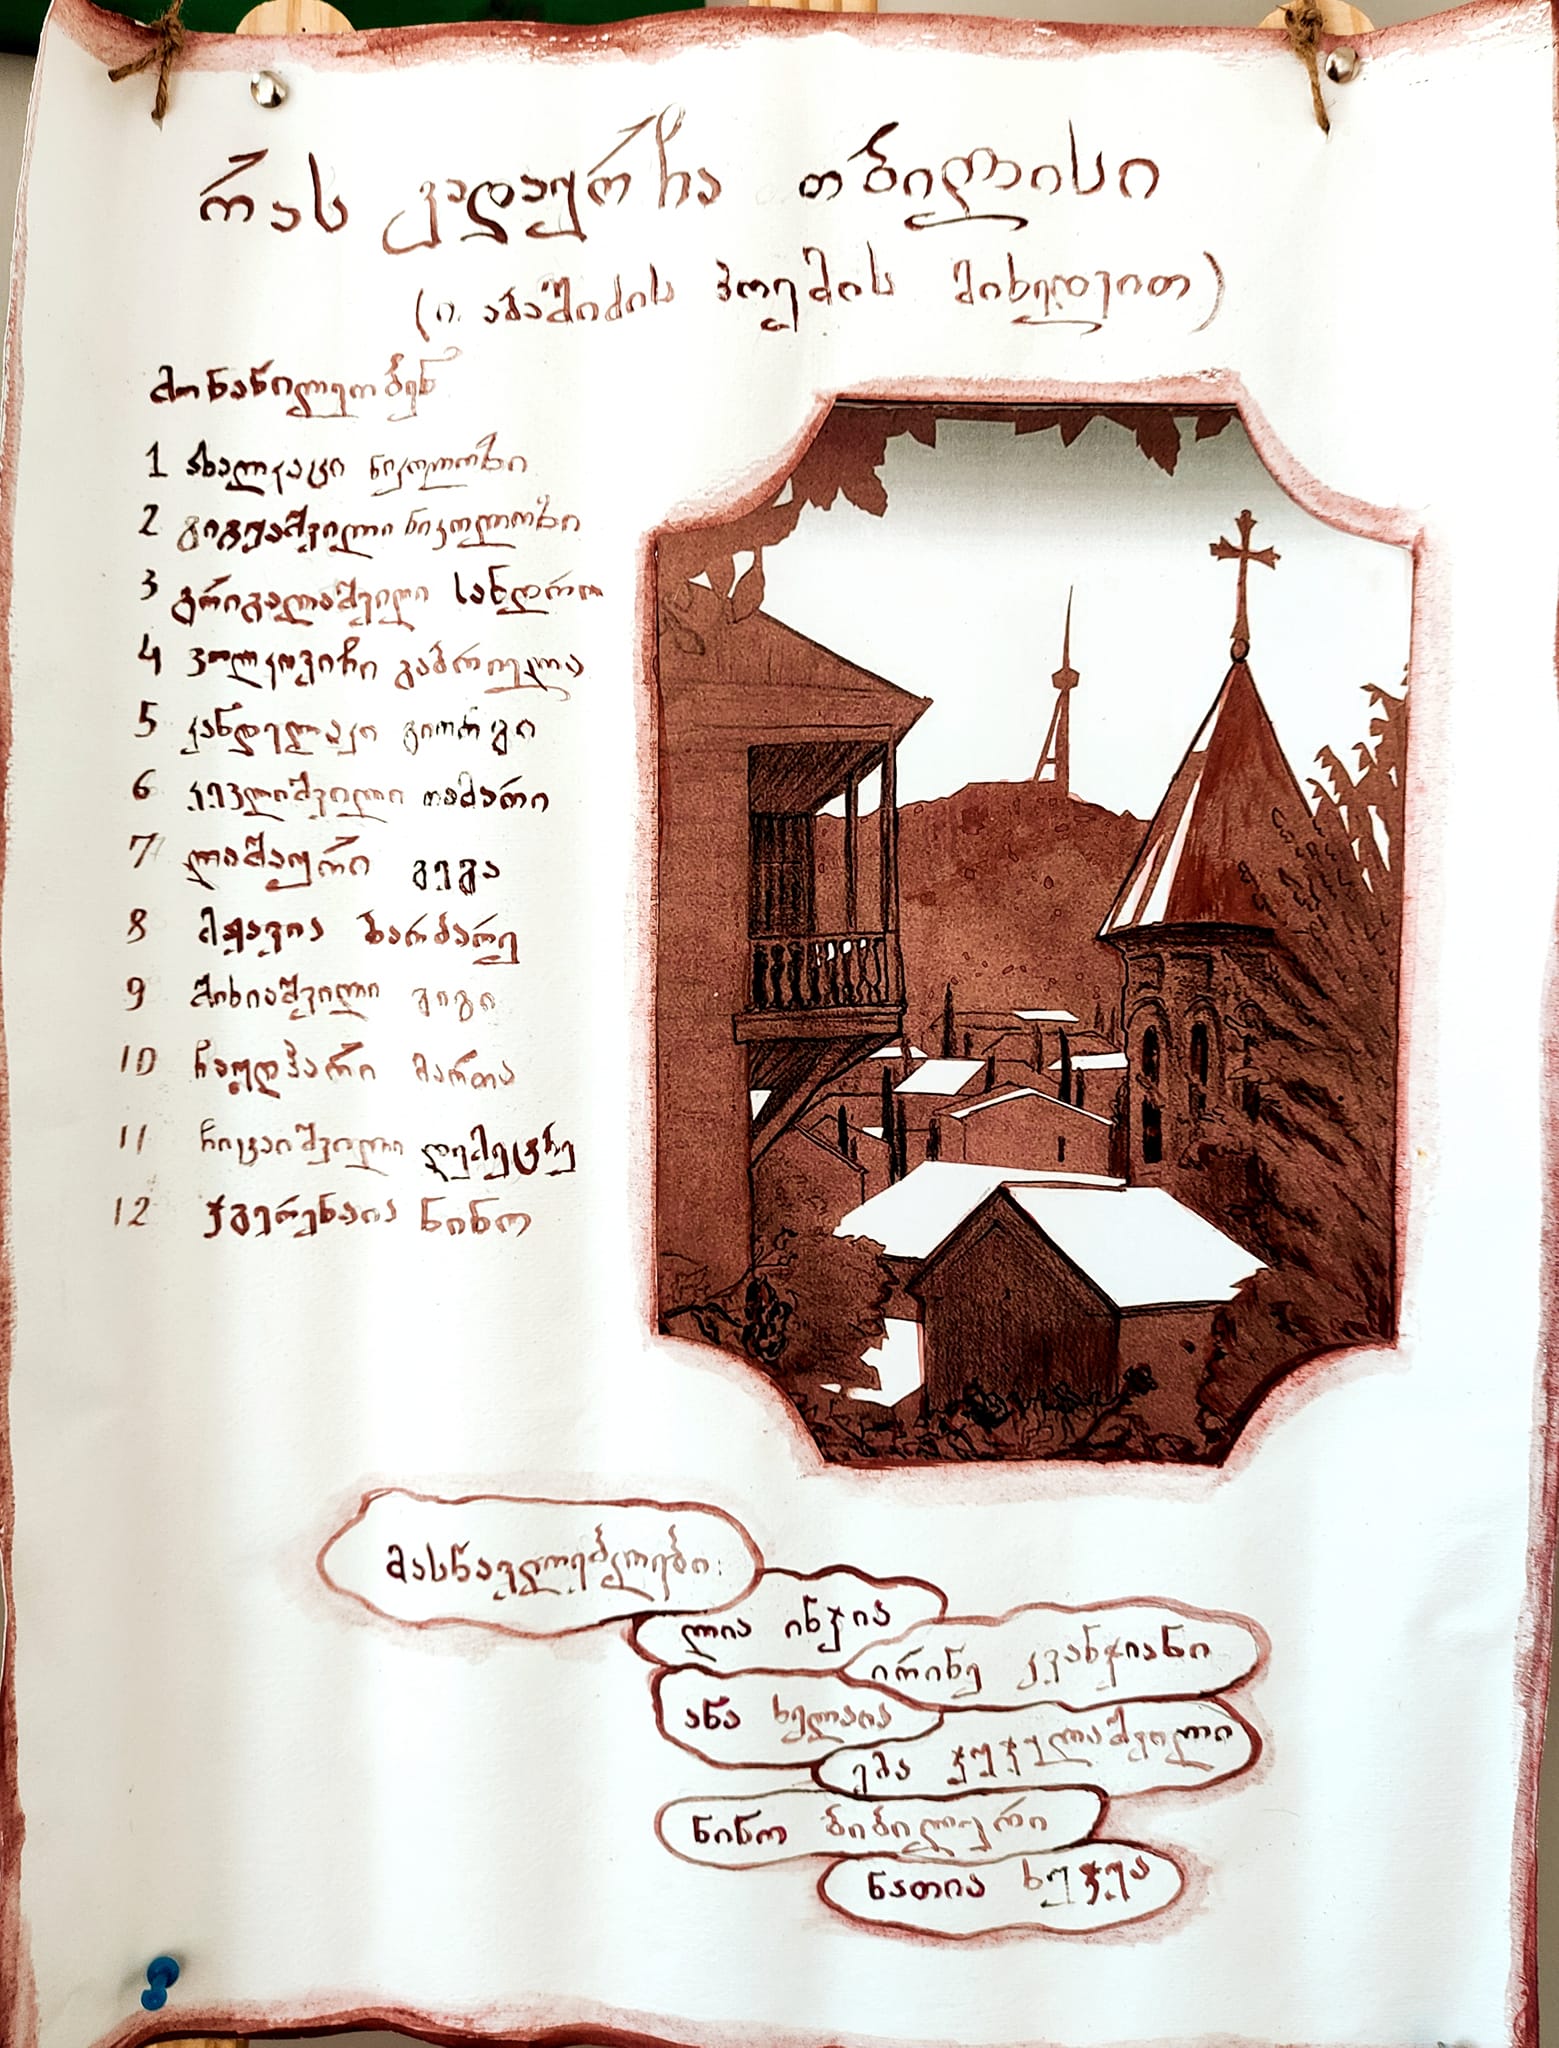 რას გადაურჩა თბილისი
(ი. აბაშიძის პოემის მიხედვით)
მონაწილეობენ
1 ახალკაცი ნიკოლოზი
2 გიგუაშვილი ნიკოლოზი
3 გრიგალაშვილი სანდრო
4 ვოლკოვიჩი გაბრიელა
5 კანდელაკი გიორგი
6 კევლიშვილი თამარი
7 ლიმაური გეგა
8 მჟავია ბარბარე
9 მიხიაშვილი გიგი
10 ჩაუდჰარი მართა
11 ჩიტაიშვილი დემეტრე
12 ჯგერენაია ნინო
მასწავლებლები:
ლია ინჯია
ირინე კვანჭიანი
ანა ხელაია
ემა ჯუჯულაშვილი
ნინო ბიბილური
ნათია ხუჯუა